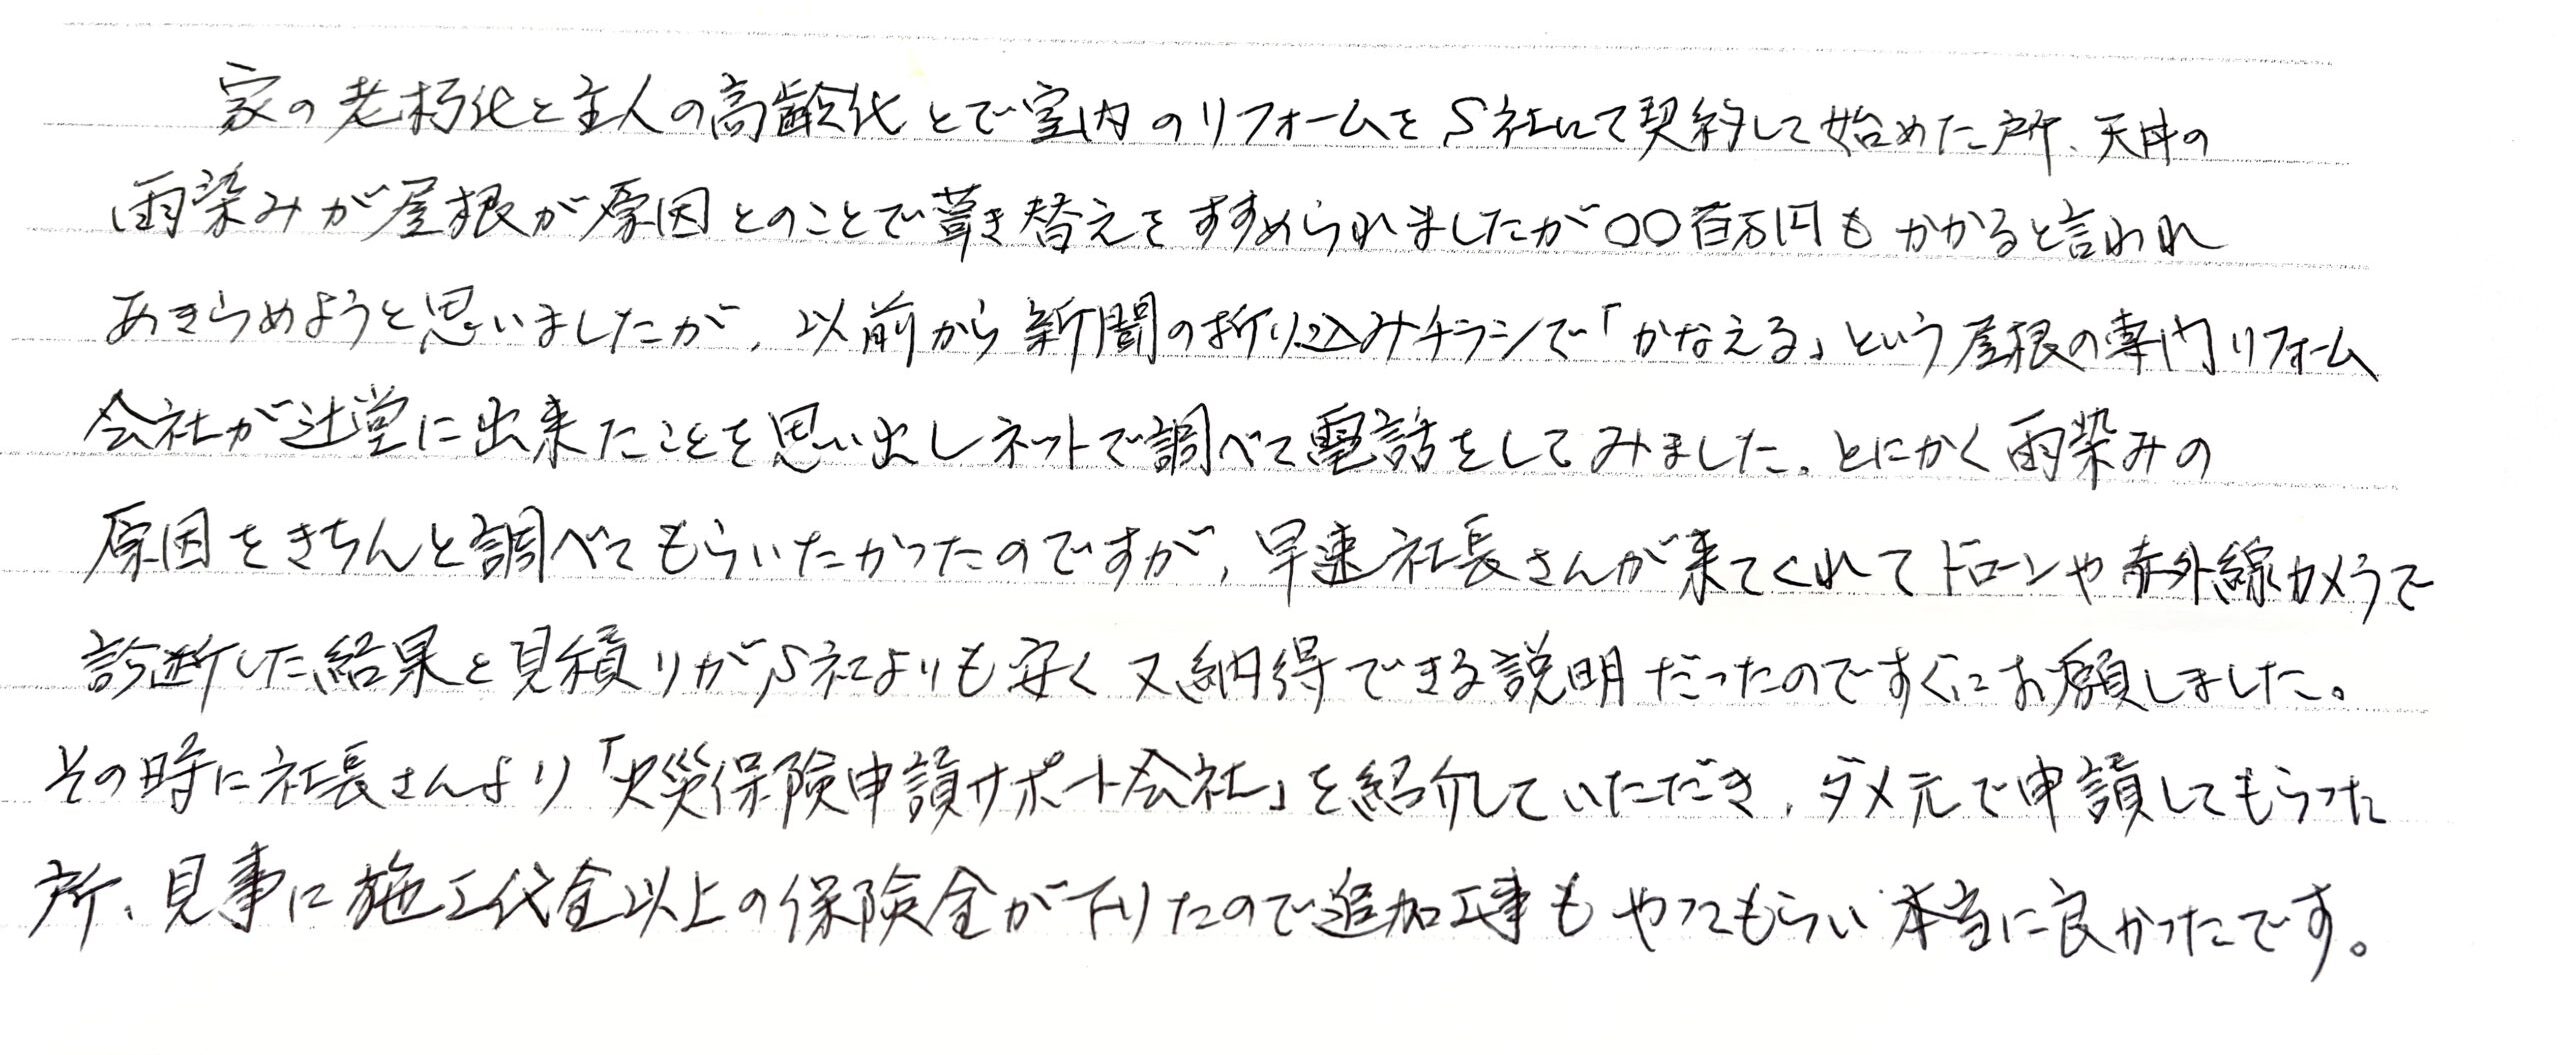 家の老朽化と主人の高齢化とで室内のリフォームをS社にて契約して始めた所、天井の
雨染みが屋根が原因とのことで葺き替えをすすめられましたが〇〇百万円もかかると言われ
あきらめようと思いましたが、以前から新聞の折り込みチラシで「かなえる」という屋根の専門リフォーム
会社が辻堂に出来たことを思い出しネットで調べて電話をしてみました。とにかく雨染みの
原因をきちんと調べてもらいたかったのですが、早速社長さんが来てくれてドローンや赤外線カメラで
診断した結果と見積りがS社よりも安く又納得できる説明だったのですぐにお願しました。
その時に社長さんより「火災保険申請サポート会社」を紹介していただき、ダメ元で申請してもらった
所、見事に施工代金以上の保険金が下りたので追加工事もやってもらい本当に良かったです。